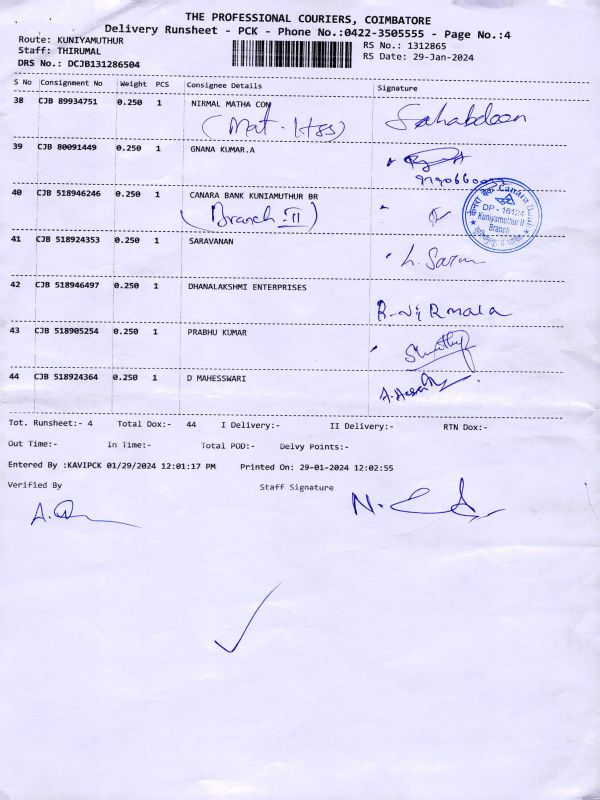 THE PROFESSIONAL COURIERS, COIMBATORE
Delivery Runsheet - PCK - Phone No.:0422-3505555 - Page No.:4
Route: KUNIYAMUTHUR
Staff: THIRUMAL
RS No.: 1312865
RS Date: 29-Jan-2024
DRS No.: DCJB131286504
S No Consignment No Weight PCS Consignee Details Signature
38 CJB 89934751 0.250 1 NIRMAL MATHA CON Sahabdeen
(Mat. HSS)
39 CJB 80091449 0.250 1 GNANA KUMAR.A
40 CJB 518946246 0.250 1 CANARA BANK KUNIAMUTHUR BR
(Branch-II)
केनरा बैंक Canara Bank
DP - 16124
Kuniyamuthur II
Branch
41 CJB 518924353 0.250 1 SARAVANAN
42 CJB 518946497 0.250 1 DHANALAKSHMI ENTERPRISES
R-Nirmala
43 CJB 518905254 0.250 1 PRABHU KUMAR
44 CJB 518924364 0.250 1 D MAHESSWARI
Tot. Runsheet:- 4 Total Dox:- 44 I Delivery:- II Delivery:- RTN Dox:-
Out Time:- In Time:- Total POD:- Delvy Points:-
Entered By :KAVIPCK 01/29/2024 12:01:17 PM Printed On: 29-01-2024 12:02:55
Verified By Staff Signature